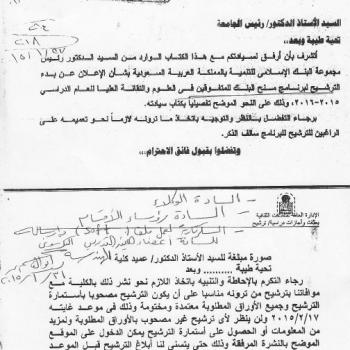 السيد الأستاذ الدكتور/ رئيس الجامعة
تحية طيبة وبعد،،
أتشرف بأن أرفق لسيادتكم مع هذا الكتاب الوارد من السيد الدكتور رئيس
مجموعة البنك الإسلامى للتنمية بالمملكة العربية السعودية بشأن الإعلان عن بدء
الترشيح لبرنامج منح البنك للمتفوقين فى العلوم والثقانة العليا للعام الدراسي
٢٠١٥-٢٠١٦، وذلك على النحو الموضح تفصيلياً بكتاب سيادته.
برجاء التفضل بالنظر والتوجيه باتخاذ ما ترونه لازماً نحو تعميمه على
الراغبين للترشيح للبرنامج سالف الذكر.
وتفضلوا بقبول فائق الاحترام،،،
السادة الوكلاء
السادة رؤساء الأقسام
الإدارة العامة للعلاقات الثقافية
بعثات وأجازات دراسية/ ترشيح
صورة مبلغة للسيد الأستاذ الدكتور/ عميد كلية
تحية طيبة .......... وبعد
رجاء التكرم بالإحاطة والتنبيه باتخاذ اللازم نحو نشر ذلك بالكلية مع
موافاتنا بترشيح من ترونه مناسبا على أن يكون الترشيح مصحوبا بأستمارة
الترشيح وجميع الأوراق المطلوبة معتمدة ومختومة وذلك فى موعد غايته
٢٠١٥/٢/١٧ ولن ينظر لأى ترشيح غير مصحوب بالأوراق المطلوبة ولمزيد
من المعلومات أو الحصول على أستمارة الترشيح يمكن الدخول على الموقع
الموضح بالنشرة المرفقة وذلك حتى يتسنى لنا أبلاغ الترشيح قبل الموعد